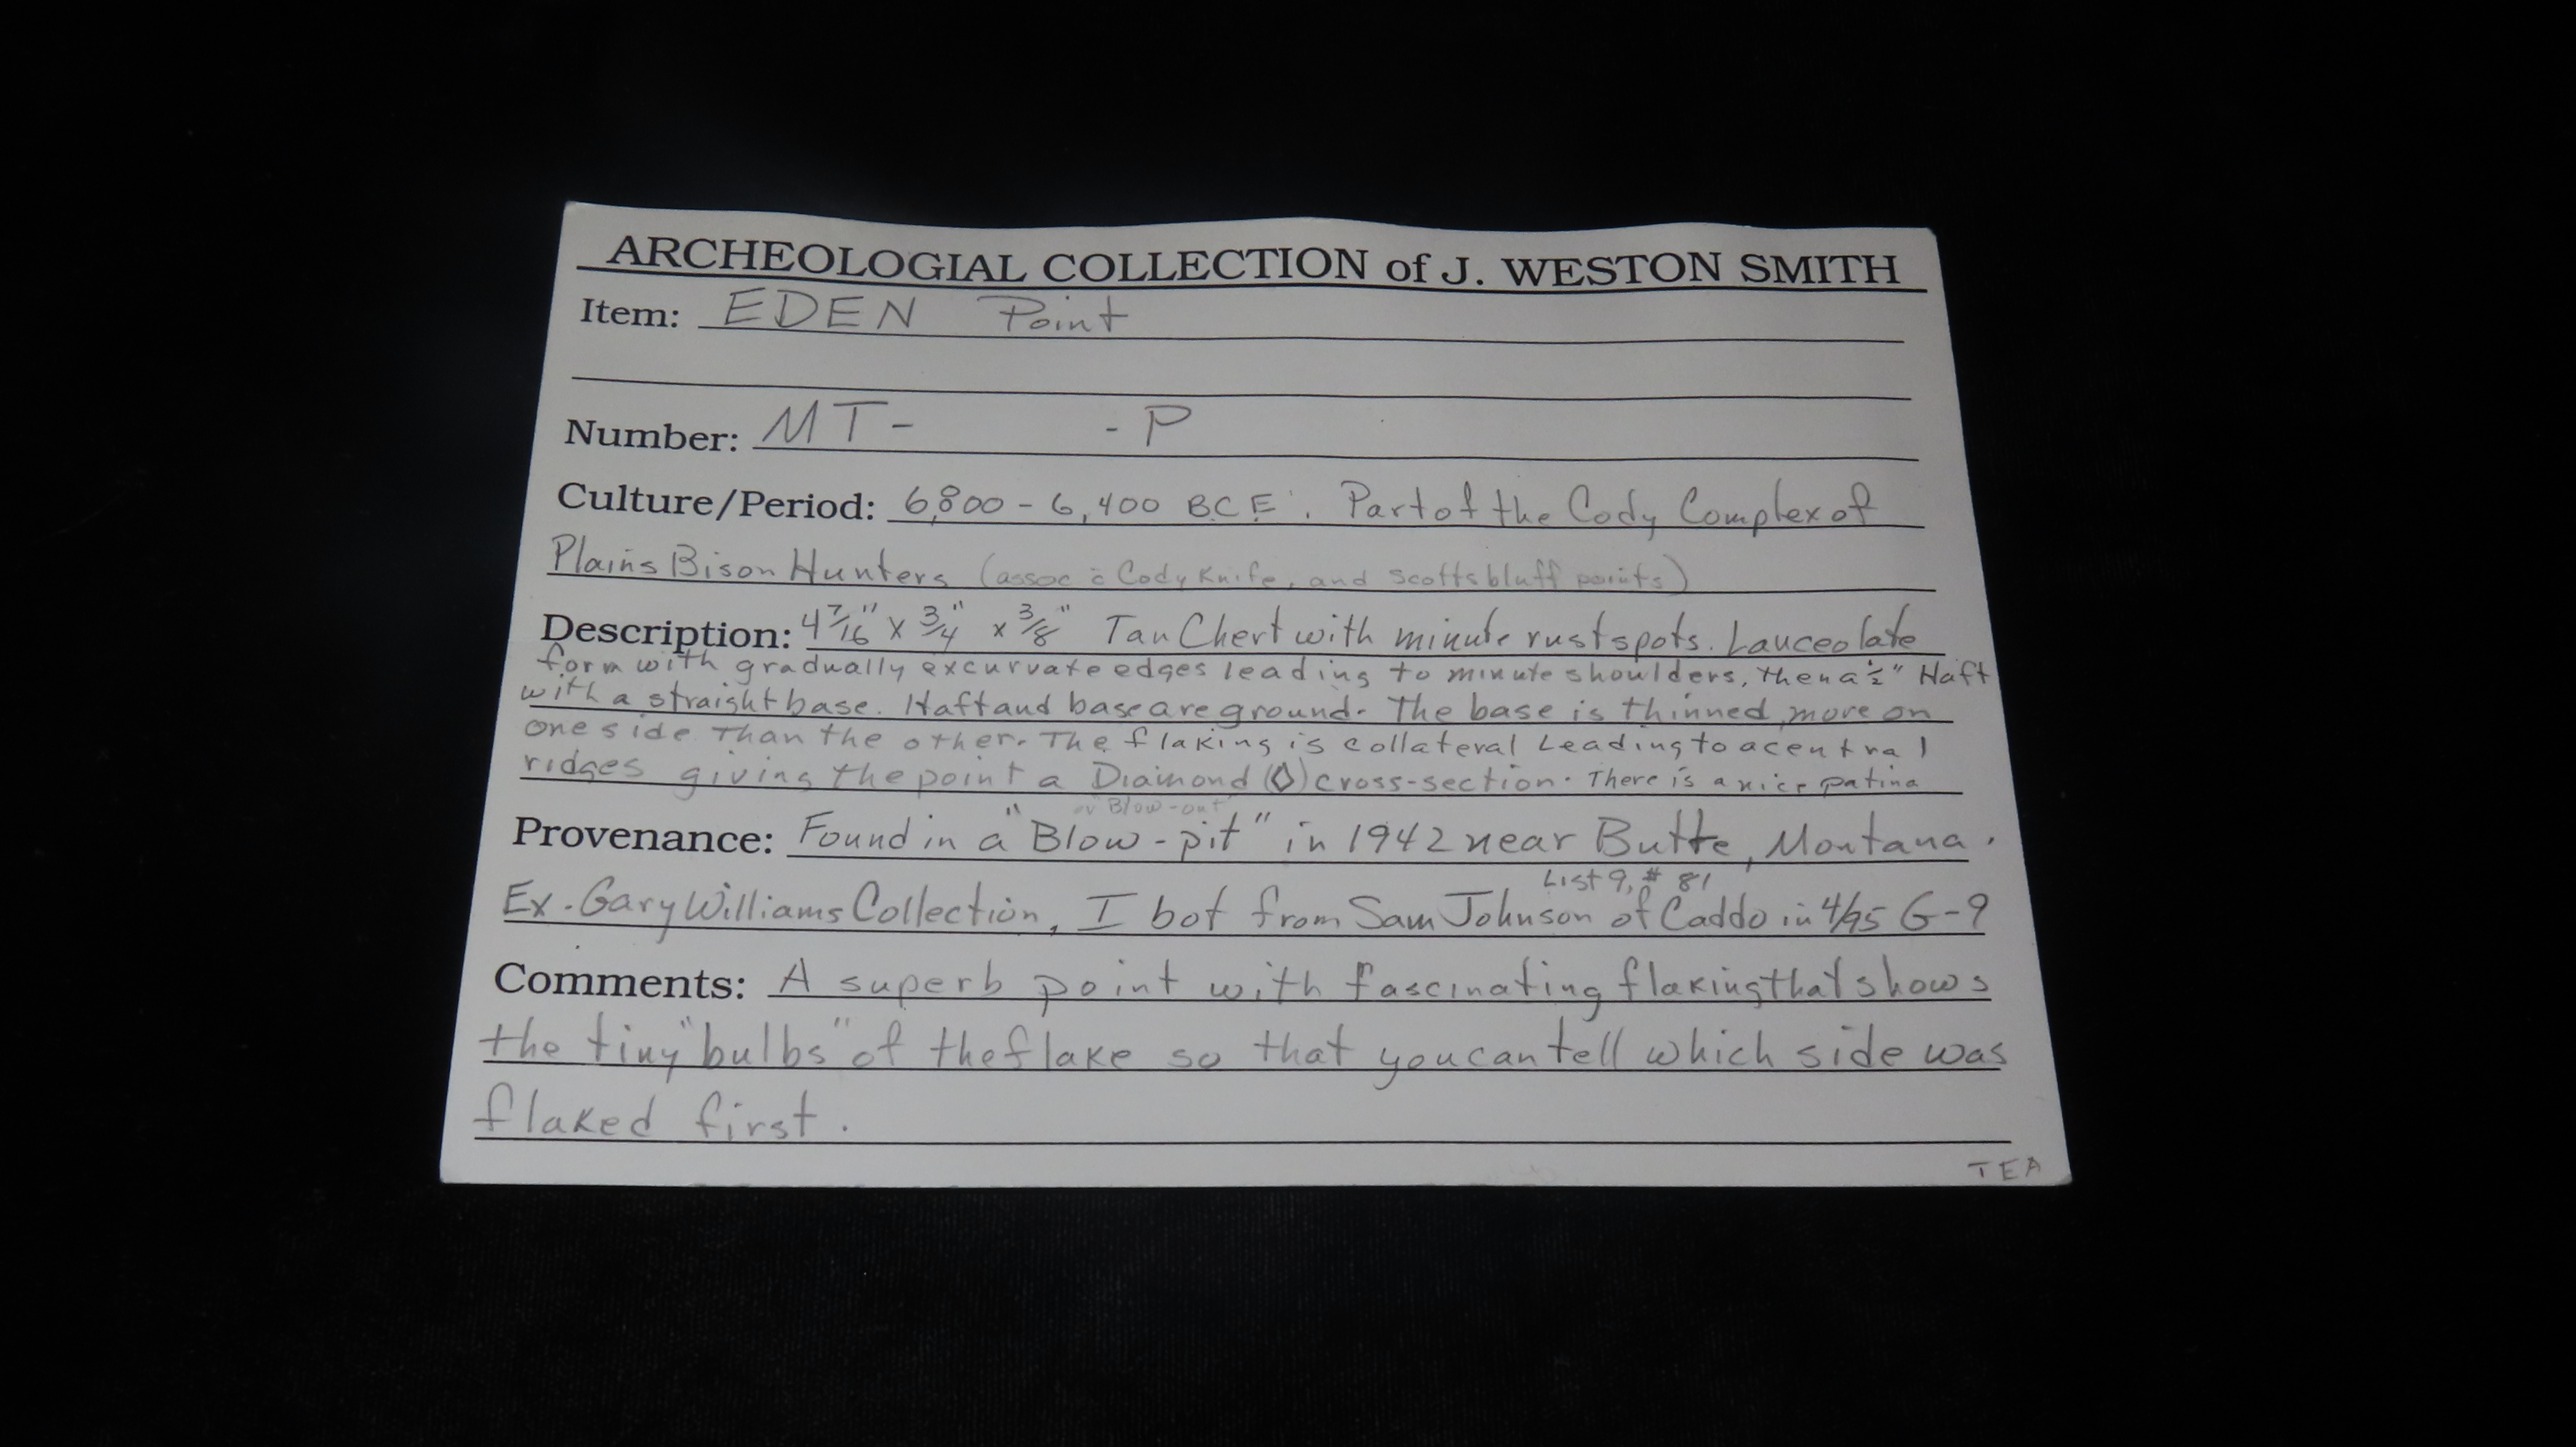 ARCHEOLOGIAL COLLECTION of J. WESTON SMITH
Item: EDEN Point
Number: MT- -P
Culture/Period: 6,800 - 6,400 BCE. Part of the Cody Complex of
Plains Bison Hunters (assoc c̄ Cody Knife, and Scottsbluff points)
Description: 4 7/16" x 3/4" x 3/8" Tan Chert with minute rust spots. Lanceolate
form with gradually excurvate edges leading to minute shoulders, then a 1/2" Haft
with a straight base. Haft and base are ground. The base is thinned more on
one side than the other. The flaking is collateral leading to a central
ridges giving the point a Diamond (◊) cross-section. There is a nice patina
or "Blow-out"
Provenance: Found in a "Blow-pit" in 1942 near Butte, Montana.
List 9, # 81
Ex. Gary Williams Collection, I bot from Sam Johnson of Caddo in 4/95 G-9
Comments: A superb point with fascinating flaking that shows
the tiny "bulbs" of the flake so that you can tell which side was
flaked first.
TEA